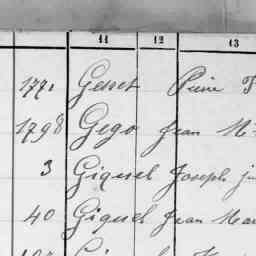 11 12 13
1771 Gesret Pierre
1798 Gego Jean M
3 Giquel Joseph
40 Giquel Jean Mar